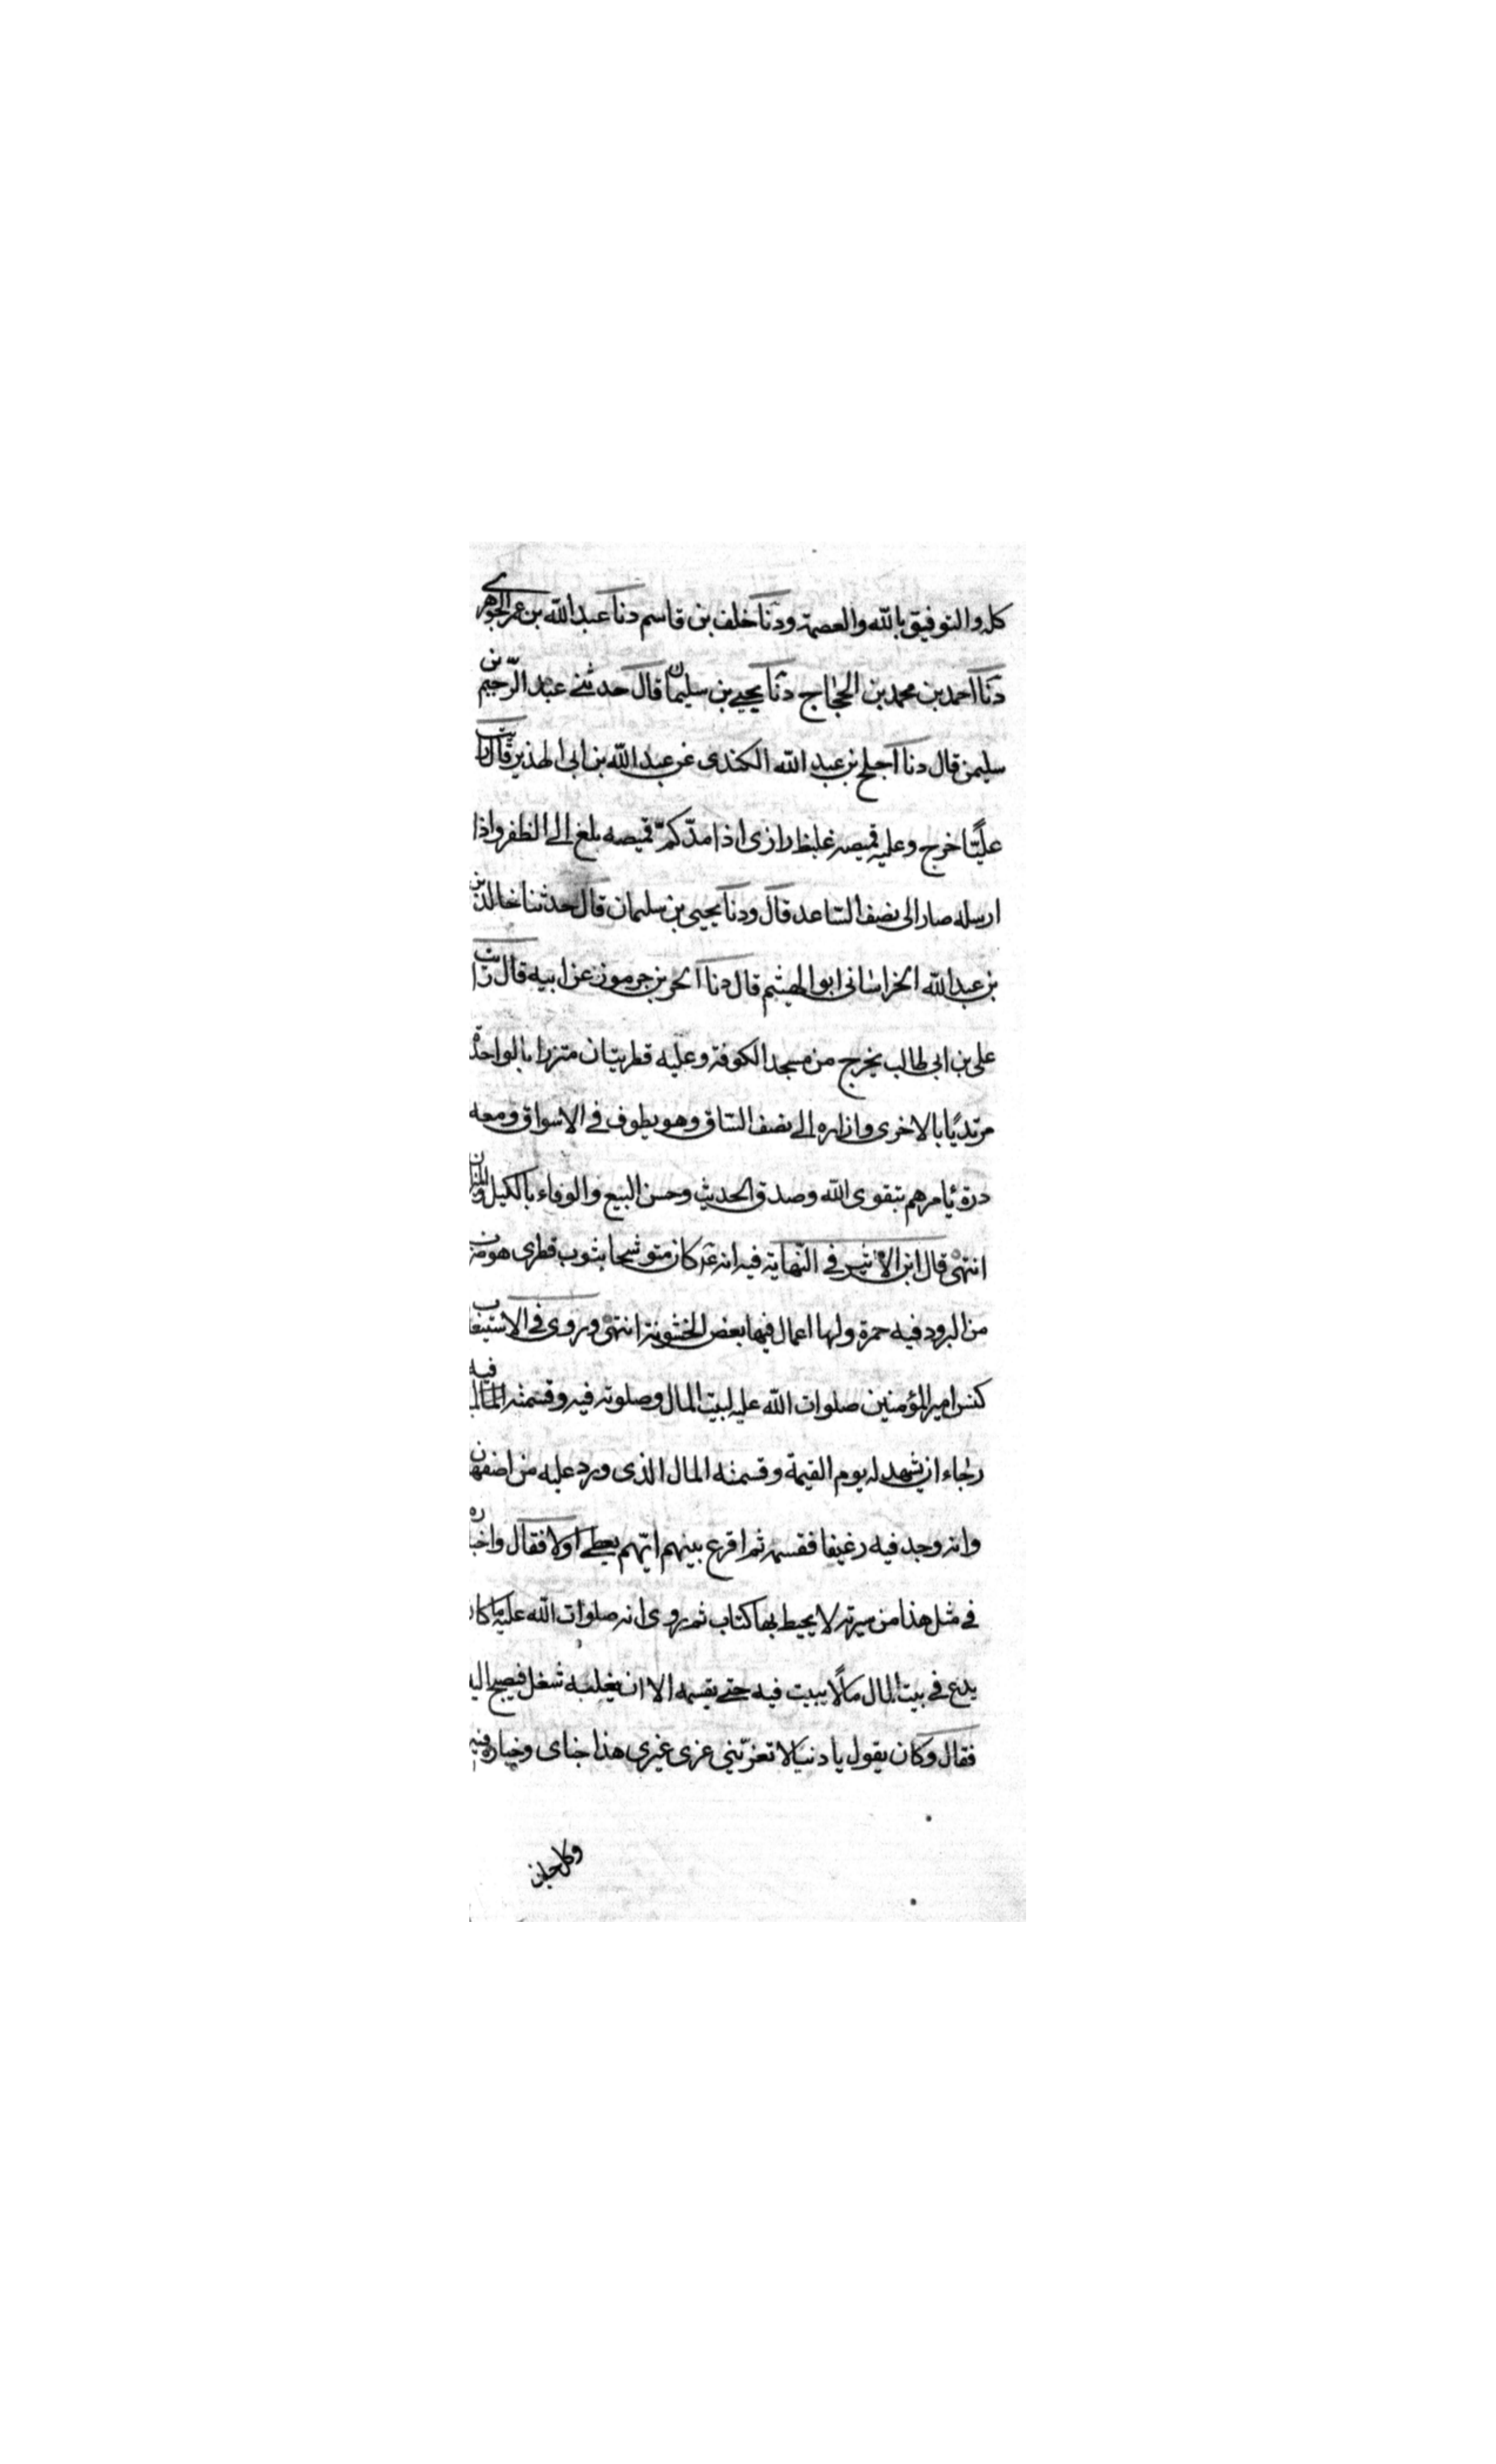 كله والتوفيق بالله والعصمة ودثنا خلف بن قاسم دنا عبدالله بن عمر الجوهري
دثنا احمد بن محمد بن الحجاج دثنا يحيى بن سليمان قال حدثنى عبد الرحيم بن
سليمن قال دنا اجلح بن عبد الله الكندى عن عبد الله بن ابى الهذيل قال رايت
عليًّا خرج وعليه قميص غليظ رازى اذا مدّ كمّ قميصه بلغ الى الظفر واذا
ارسله صار الى نصف الساعد قال ودنا يحيى بن سليمان قال حدثنا خالد بن
بن عبد الله الخراسانى ابو الهيثم قال دنا الحر بن جرموز عن ابيه قال رايت
على بن ابى طالب يخرج من مسجد الكوفة وعليه قطريتان متزرا بالواحدة
مرتديًا بالاخرى وازاره الى نصف الساق وهو يطوف فى الاسواق ومعه
درة يامرهم بتقوى الله وصدق الحديث وحسن البيع والوفاء بالكيل والميزان
انتهى قال ابن الاثير فى النهاية فيه انه كان متوشحا بثوب قطرى هو ضرب
من البرود فيه حمرة ولها اعمال فيها بعض الخشونة انتهى وروى فى الاستيعاب
كنس امير المؤمنين صلوات الله عليه لبيت المال وصلوته فيه وقسمته المال فيه
رجاء ان يشهد له يوم القيمة وقسمته المال الذى ورد عليه من اصفهان
وانه وجد فيه رغيفا فقسمه ثم اقرع بينهم ايّهم يعطى اولا فقال واخباره
فى مثل هذا من سيرته لا يحيط بها كتاب ثم روى انه صلوات الله عليه ما كان
يدع فى بيت المال مالًا يبيت فيه حتى يقسمه الا ان يغلبه شغل فيصبح اليه
فقال وكان يقول يا دنيا لا تغرّينى غرى غيرى هذا جناى وخياره فيه
وكل جان